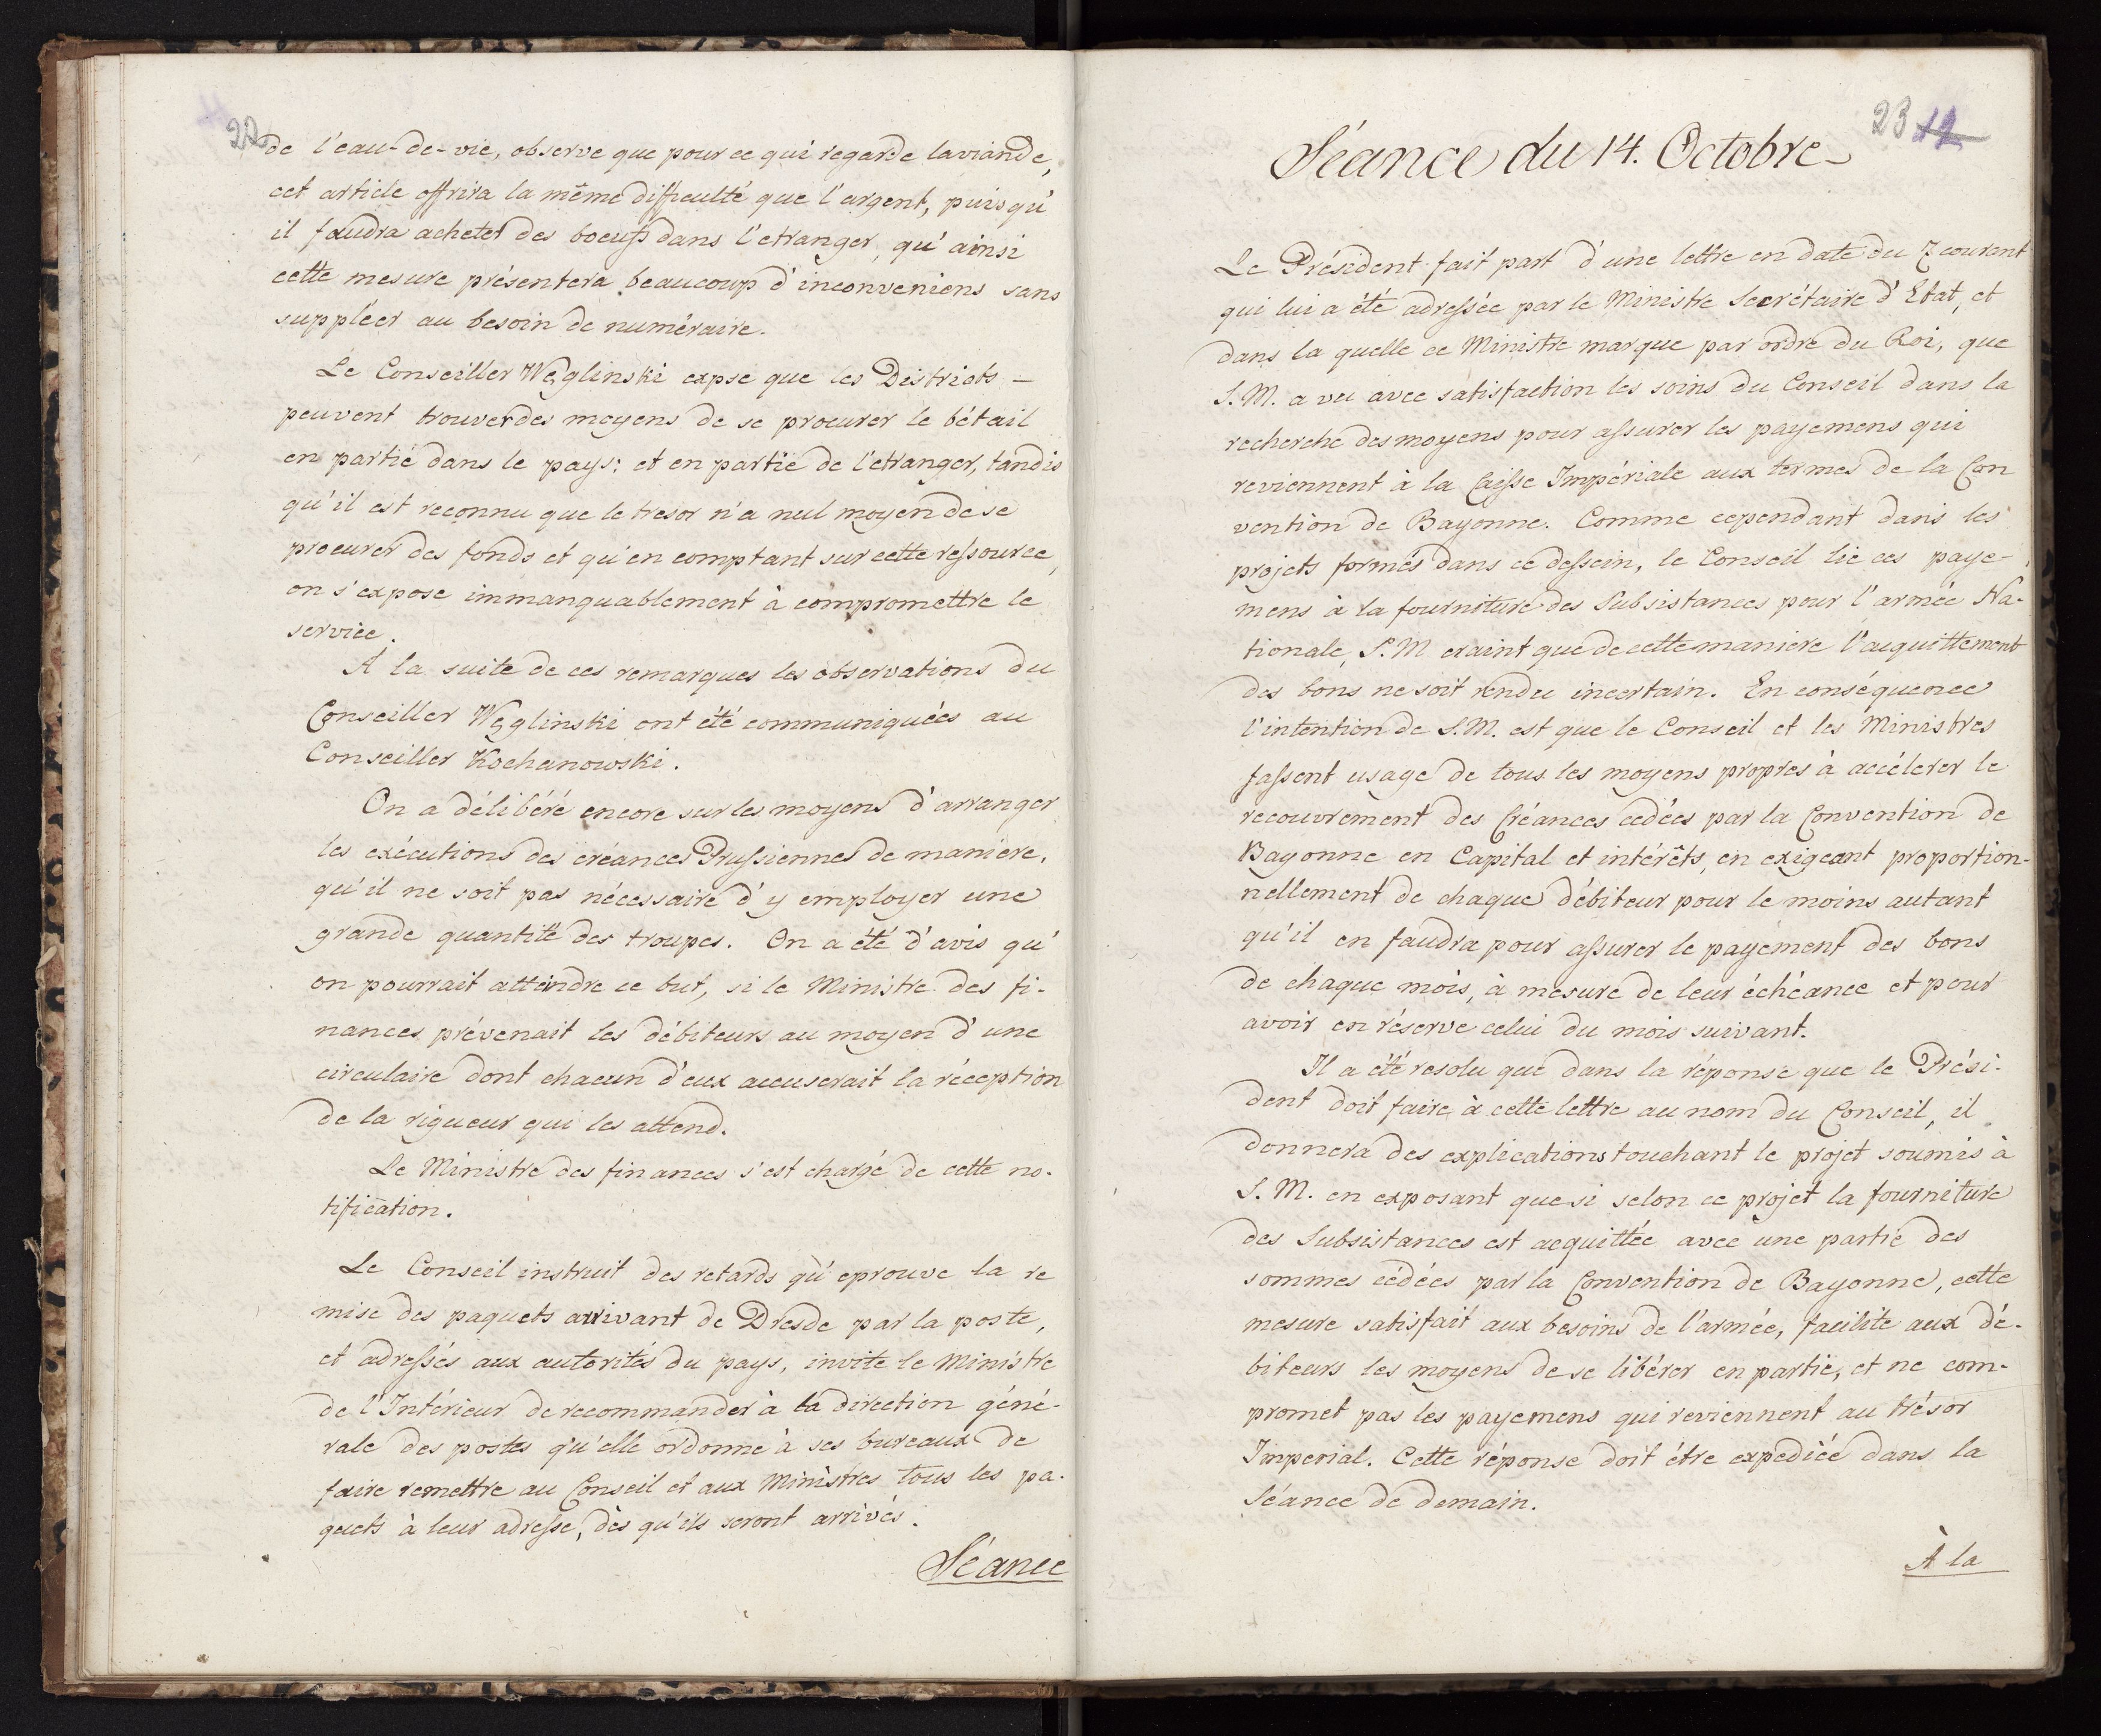 22
de l'eau-de-vie, observe que pour ce qui regarde la viande,
cet article offrira la même difficulté que l'argent, puisqu'
il faudra acheter des boeufs dans l'etranger, qu'ainsi
cette mesure présentera beaucoup d'inconveniens sans
suppléer au besoin de numéraire.
Le Conseiller Węglinski expse que les Districts —
peuvent trouver des moyens de se procurer le bétail
en partie dans le pays; et en partie de l'etranger, tandis
qu'il est reconnu que le tresor n'a nul moyen de se
procurer des fonds et qu'en comptant sur cette ressource,
on s'expose immanquablement à compromettre le
service.
À la suite de ces remarques les observations du
Conseiller Węglinski ont été communiquées au
Conseiller Kochanowski.
On a délibéré encore sur les moyens d'arranger
les exécutions des créances Prussiennes de maniere,
qu'il ne soit pas nécessaire d'y employer une
grande quantité des troupes. On a été d'avis qu'
on pourrait atteindre ce but, si le Ministre des fi-
nances prévenait les débiteurs au moyen d'une
circulaire dont chacun d'eux accuserait la réception
de la rigueur qui les attend.
Le Ministre des finances s'est chargé de cette no-
tification.
Le Conseil instruit des retards qu'eprouve la re
mise des paquets arrivant de Dresde par la poste,
et adressés aux autorités du pays, invite le Ministre
de l'Intérieur de recommander à la direction géné-
rale des postes qu'elle ordonne à ses bureaux de
faire remettre au Conseil et aux Ministres tous les pa-
quets à leur adresse, dès qu'ils seront arrivés.
Séance
23 12
Séance du 14. Octobre
Le Président fait part d'une lettre en date du 7 courant
qui lui a été adressée par le Ministre Secrétaire d'Etat, et
dans la quelle ce Ministre marque par ordre du Roi, que
S. M. a vu avec satisfaction les soins du Conseil dans la
recherche des moyens pour assurer les payemens qui
reviennent à la Caisse Impériale aux termes de la Con
vention de Bayonne. Comme cependant dans les
projets formés dans ce dessein, le Conseil lie ces paye-
mens à la fourniture des Subsistances pour l'armée Na-
tionale, S. M craint que de cette maniere l'acquittement
des bons ne soit rendu incertain. En conséquence
l'intention de S. M. est que le Conseil et les Ministres
fassent usage de tous les moyens propres à accélerer le
recouvrement des Créances cedées par la Convention de
Bayonne en Capital et intérêts, en exigeant proportion-
nellement de chaque débiteur pour le moins autant
qu'il en faudra pour assurer le payement des bons
de chaque mois, à mesure de leur échéance et pour
avoir en réserve celui du mois suivant.
Il a été resolu que dans la réponse que le Prési-
dent doit faire à cette lettre au nom du Conseil, il
donnera des explications touchant le projet soumis à
S. M. en exposant que si selon ce projet la fourniture
des Subsistances est acquittée avec une partie des
sommes cédées par la Convention de Bayonne, cette
mesure satisfait aux besoins de l'armée, facilite aux dé-
biteurs les moyens de se libérer en partie, et ne com-
promet pas les payemens qui reviennent au trésor
Imperial. Cette réponse doit être expediée dans la
Séance de demain.
À la